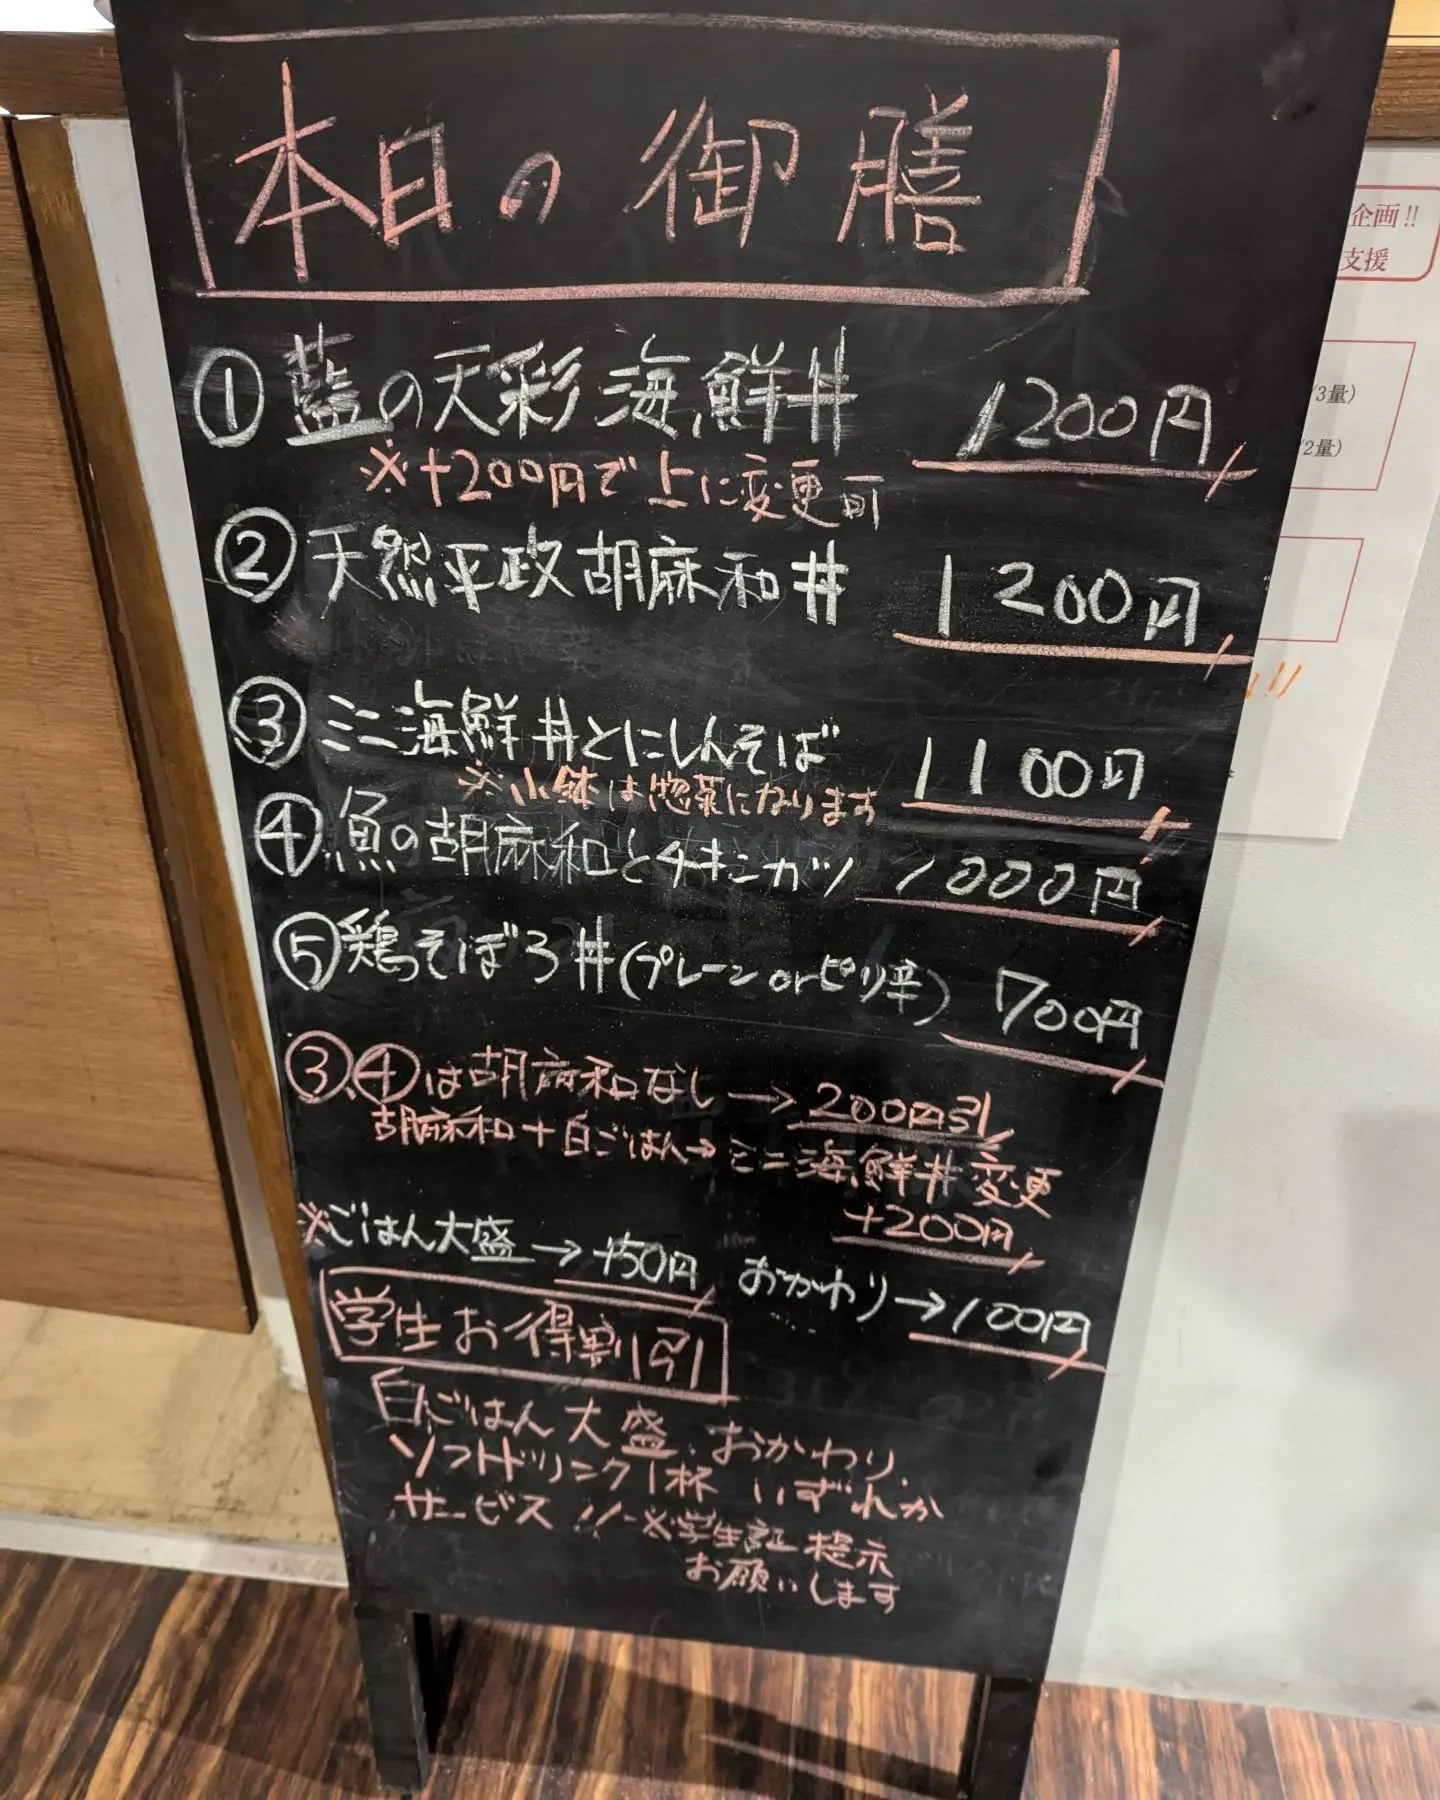 本日の御膳
①藍の天彩海鮮丼 1200円
※+200円で上に変更可
②天然平政胡麻和丼 1200円
③ミニ海鮮丼とにしんそば 1100円
※小鉢は惣菜になります
④魚の胡麻和とチキンカツ 1000円
⑤鶏そぼろ丼(プレーンorピリ辛) 700円
③④は胡麻和なし→200円引
胡麻和+白ごはん→ミニ海鮮丼変更
+200円
※ごはん大盛→+50円 おかわり→100円
学生お得割引
白ごはん大盛.おかわり.
ソフトドリンク1杯 いずれか
サービス!!※学生証提示
お願いします
企画!!
支援
/3量)
/2量)
!!